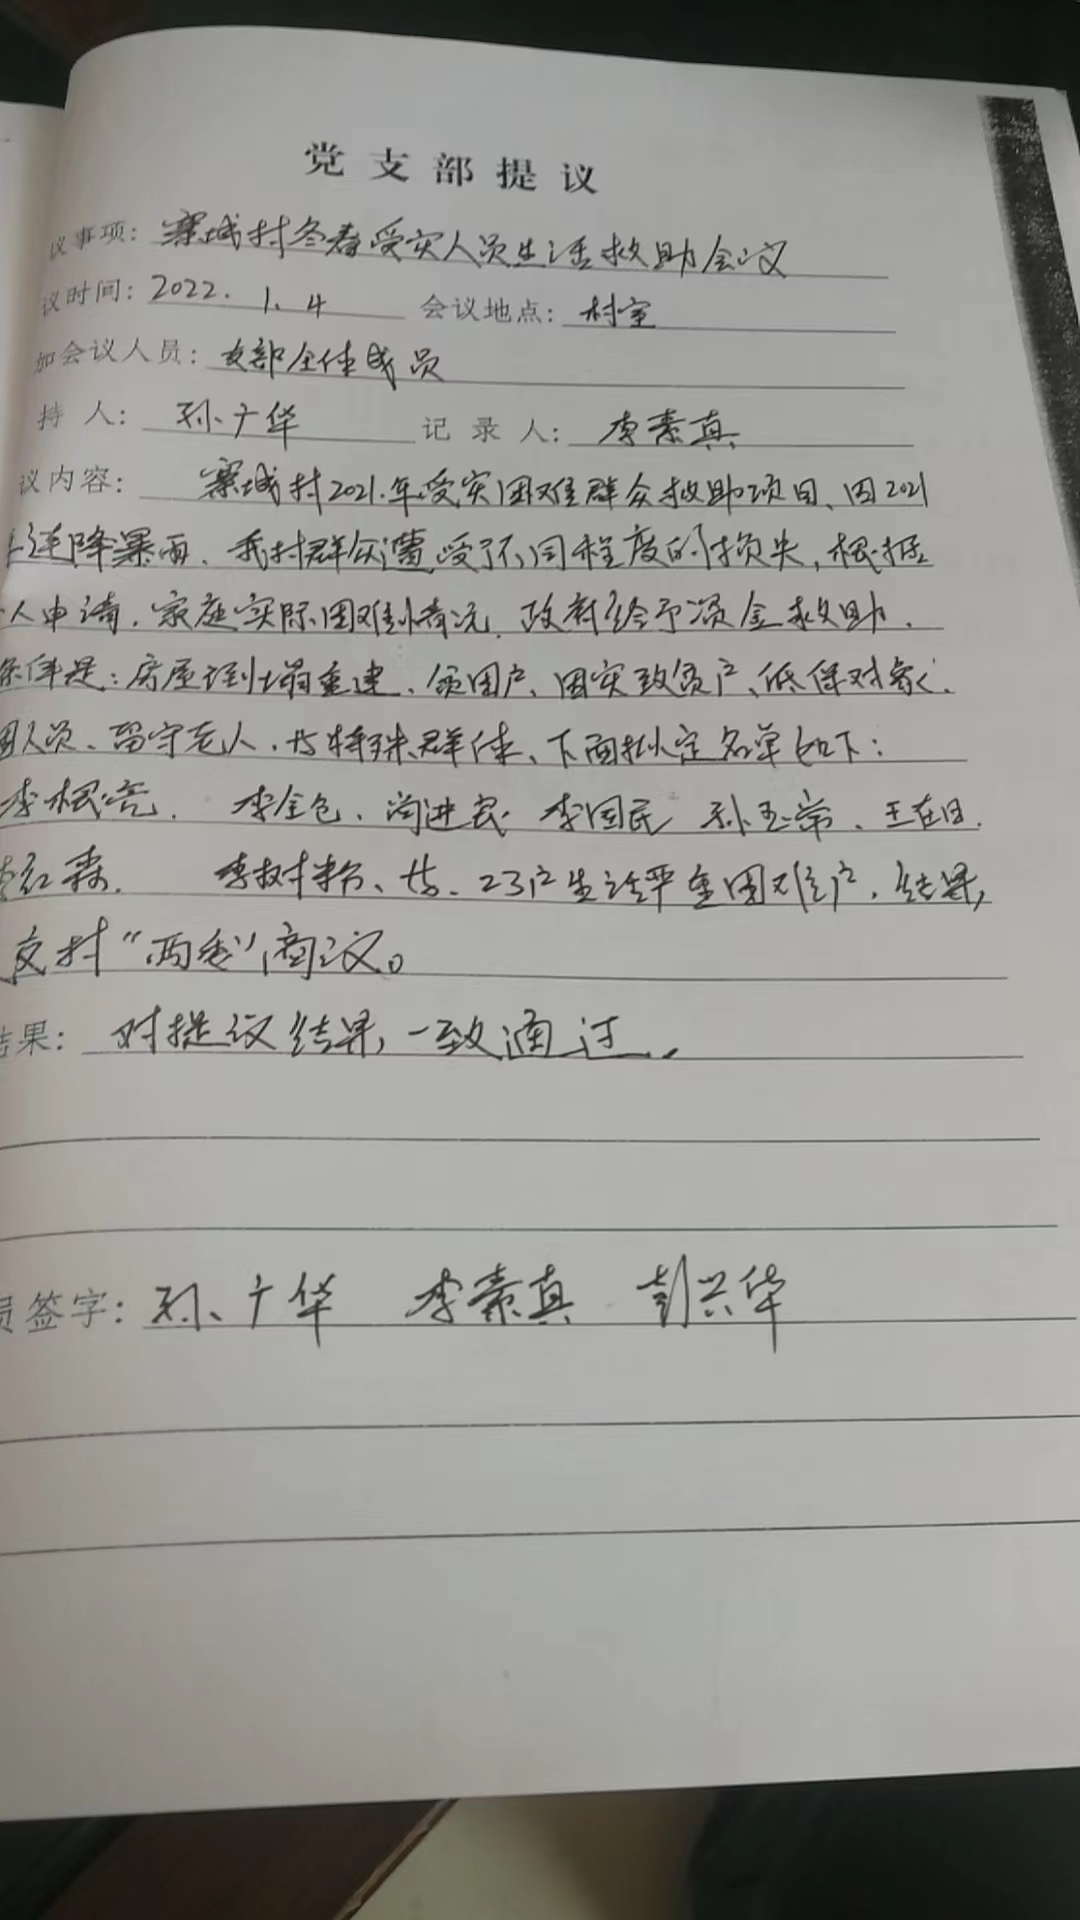 党支部提议
议事项：寨城村冬春受灾人员生活救助会议
议时间：2022.1.4 会议地点：村室
加会议人员：支部全体成员
持人：孙广华 记录人：李素真
议内容：寨城村2021.年受灾困难群众救助项目、因2021
连降暴雨、我村群众遭受了不同程度的损失，根据
人申请、家庭实际困难情况、政府给予资金救助、
条件是：房屋倒塌重建、贫困户、因灾致贫户、低保对象、
困人员、留守老人、与特殊群体、下面拟定名单如下：
李根亮、李全包、闫进良、李国民 孙玉常、王在日、
红森、李树粉、等、23户生活严重困难户、结果，
交村“两委”商议。
结果：对提议结果，一致通过。
员签字：孙广华 李素真 彭兴华